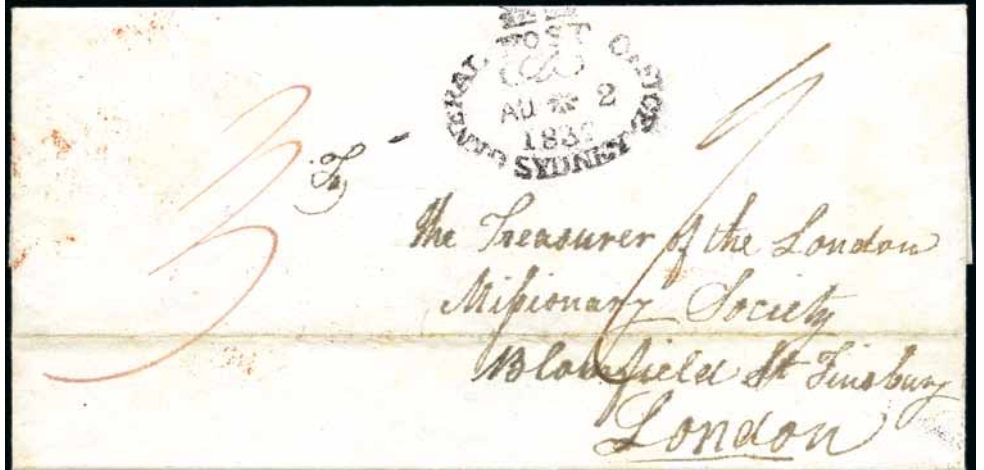 GENERAL POST OFFICE SYDNEY
AU 2
183
3
To
the Treasurer of the London
Missionary Society
Blomfield St Finsbury
London